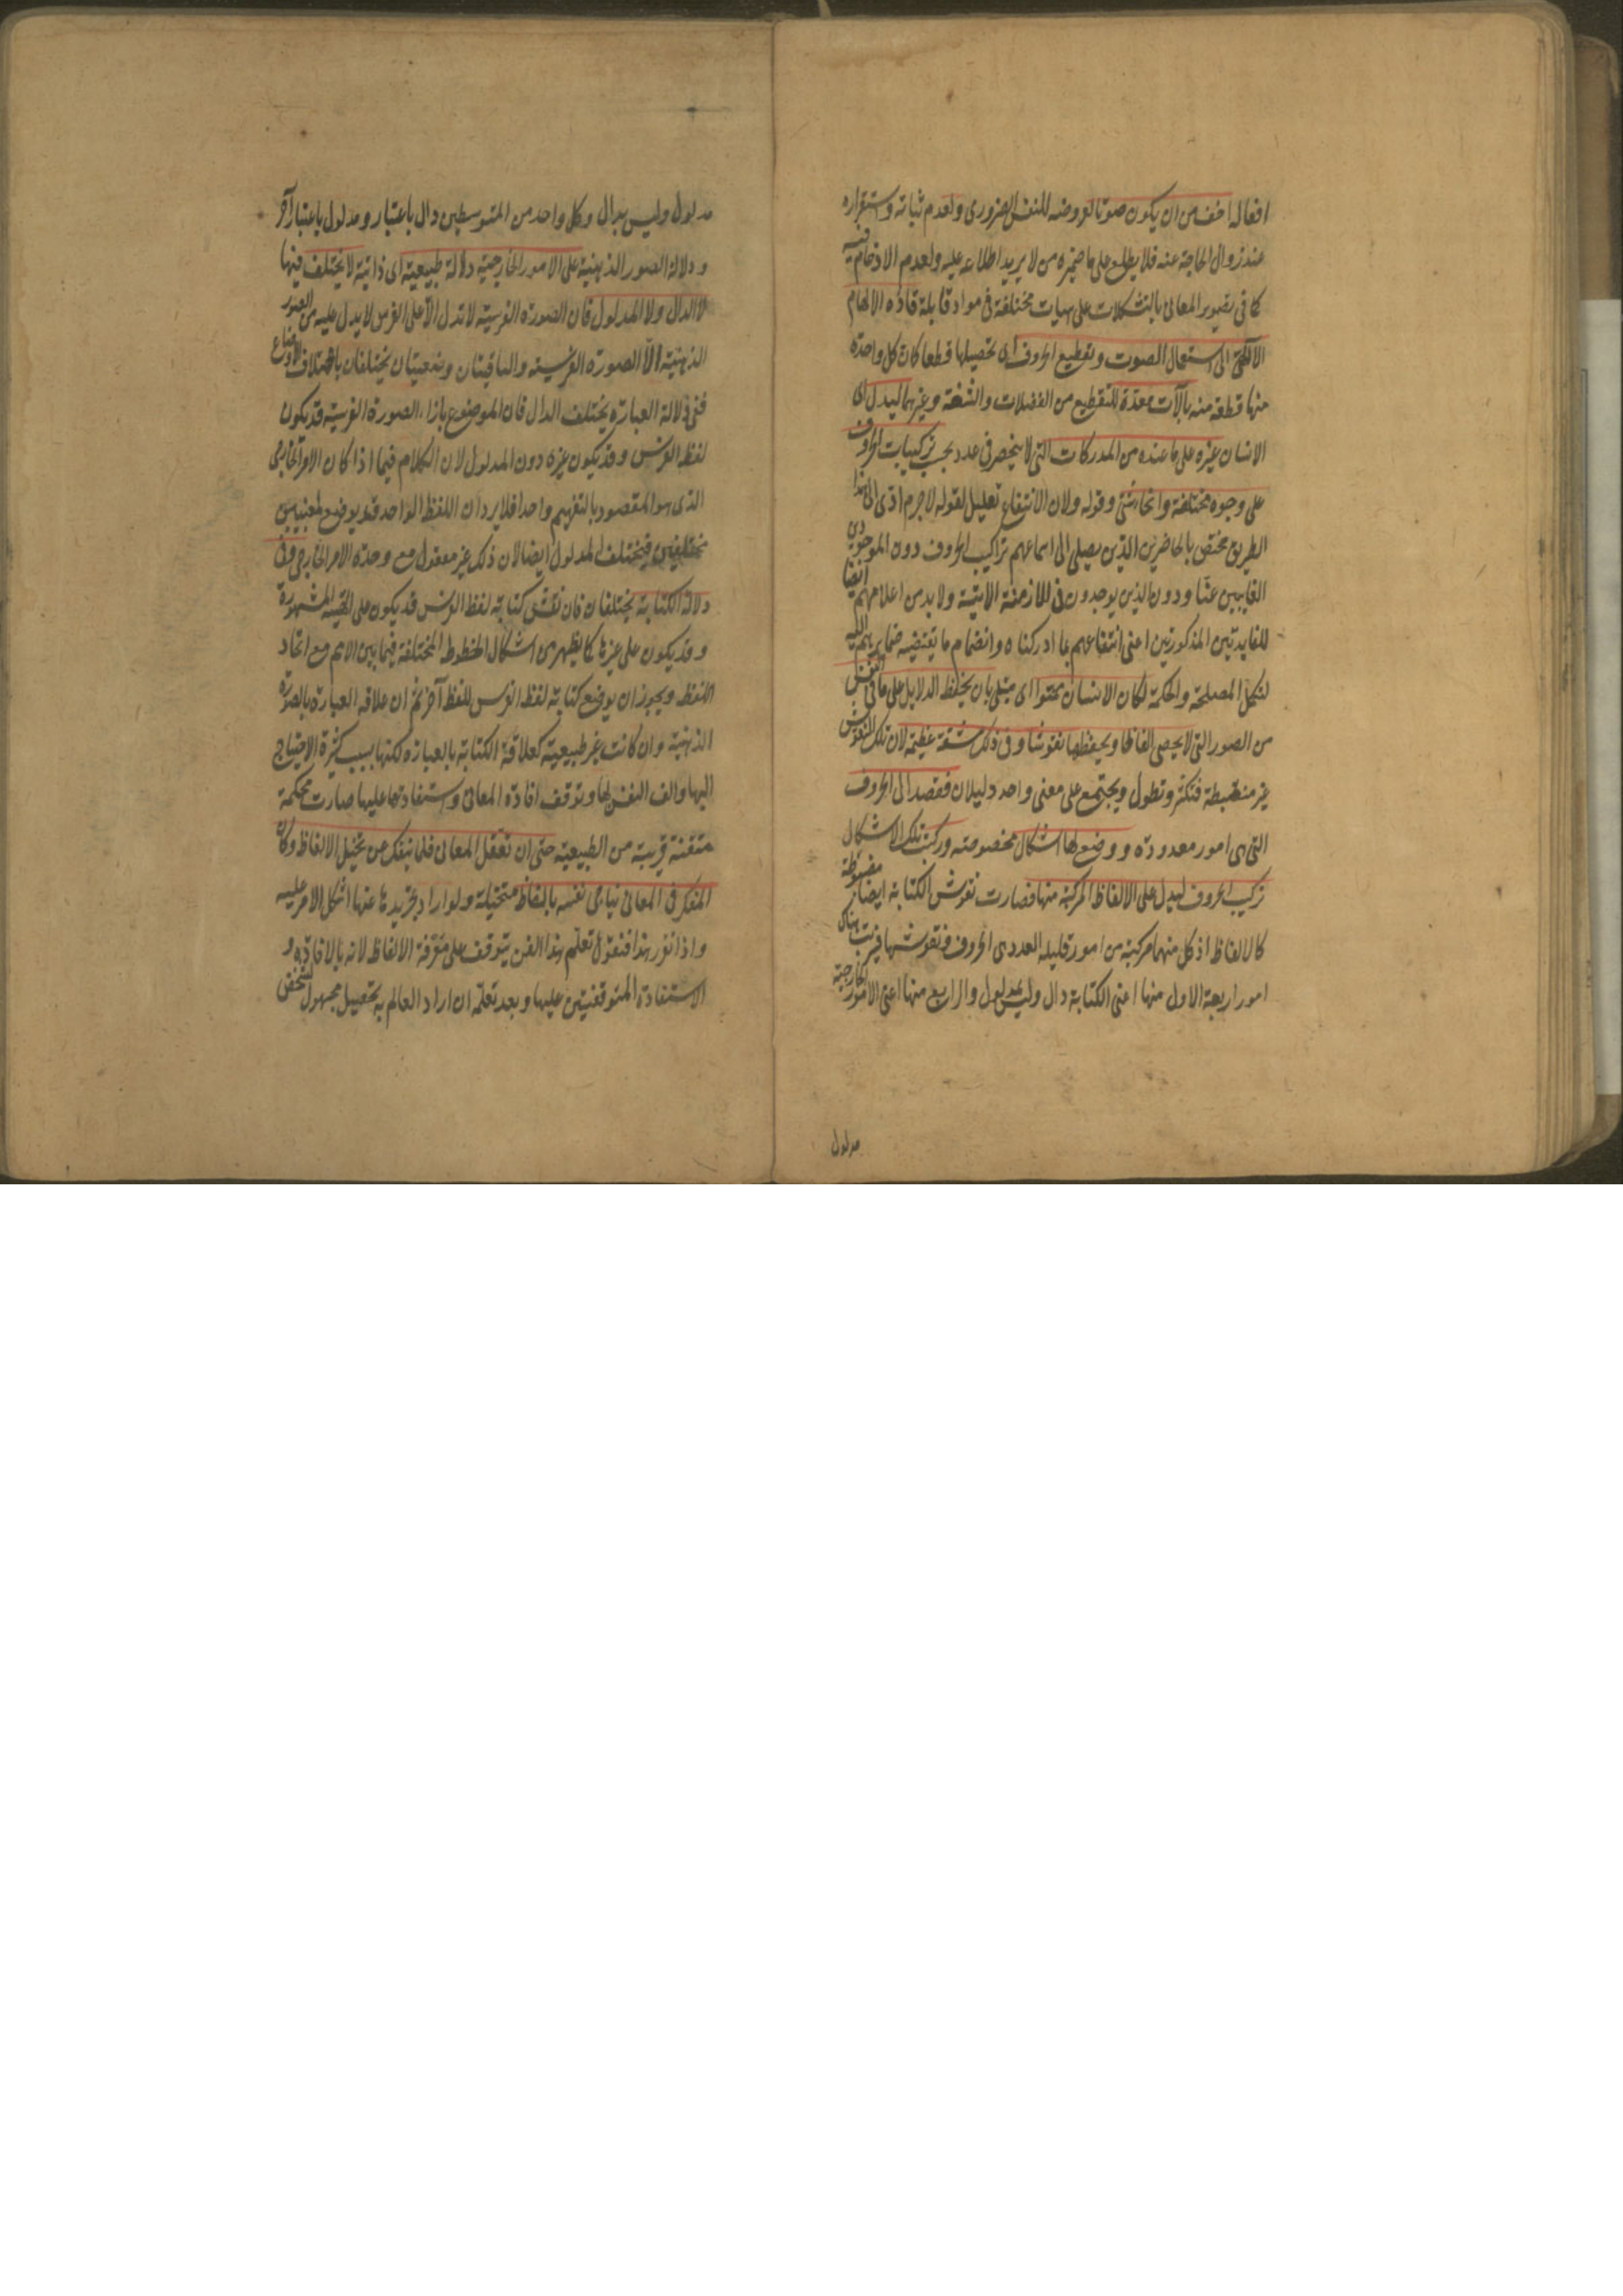 افعاله اخف من ان يكون صوتا لعروضه للنفس الضرورى ولعدم ثباته واستقراره
عند زوال الحاجة عنه فلا يطلع على ما ضميره من لا يريد اطلاعه عليه ولعدم الازدحام فيه
كما فى تصوير المعانى بالتشكلات على هيات مختلفة فى مواد قابلة قاده الالهام
الالهى الى استعمال الصوت وتقطيع الحروف اى تحصيلها قطعا كان كل واحدة
منها قطعة منه بالآت معدّة للتقطيع من العضلات والشفة وغيرهما ليدل اى
الانسان غيره على ما عنده من المدركات التى لا ينحصر فى عدد بحسب تركيبات الحروف
على وجوه مختلفة وانحاء شتى وقوله ولان الانتفاع تعليل لقوله لاجرم ادى الى هذا
الطريق مختص بالحاضرين الذين يصل الى اسماعهم تراكيب الحروف دون الموجودين
الغايبين عنّا ودون الذين يوجدون فى الازمنة الاتية ولا بد من اعلامهم ايضا
للفايدتين المذكورتين اعنى انتفاعهم بما ادركناه وانضمام ما يقتضيه ضمايرهم اليه
لتكمل المصلحة والحكمة لكان الانسان ممنوا اى مبتلى بان يحفظ الدلايل على ما فى النفس
من الصور التى لا يحصى الفاظا ويحفظها نقوشا وفى ذلك مشقة عظيمة لان تلك النقوش
غير منضبطة فتكثر وتطول ويجتمع على معنى واحد دليلان فقصد الى الحروف
التى هى امور معدودة ووضع لها اشكال مخصوصة وركبت تلك الاشكال
تركيب الحروف ليدل على الالفاظ المركبة منها فصارت نقوش الكتابة ايضا مضبوطة
كالالفاظ اذ كل منهما مركبة من امور قليلة العدد هى الحروف ونقوشها فترتب هناك
امور اربعة الاول منها اعنى الكتابة دال وليس بمدلول والرابع منها اعنى الامور الخارجية
مدلول
مدلول وليس بدال وكل واحد من المتوسطين دال باعتبار ومدلول باعتبار آخر
ودلالة الصور الذهنية على الامور الخارجية دلالة طبيعية اى ذاتية لا يختلف فيها
لا الدال ولا المدلول فان الصورة الفرسية لا تدل الا على الفرس ولا يدل عليه من الصور
الذهنية الّا الصورة الفرسية والباقيتان وضعيتان يختلفان باختلاف الاوضاع
ففى دلالة العبارة يختلف الدال فان الموضوع بازاء الصورة الفرسية قد يكون
لفظ الفرس وقد يكون غيره دون المدلول لان الكلام فيما اذا كان الامر الخارجى
الذى هو المقصود بالتفهيم واحدا فلا يرد ان اللفظ الواحد قد يوضع لمعنيين
مختلفين فيختلف المدلول ايضا لان ذلك غير معقول مع وحدة الامر الخارجى وفى
دلالة الكتابة يختلفان فان نقش كتابة لفظ الفرس قد يكون على الهيئة المشهورة
وقد يكون على غيرها كما يظهر من اشكال الخطوط المختلفة فيما بين الامم مع اتحاد
اللفظ ويجوز ان يوضع كتابة لفظ الفرس للفظ آخر ثم ان علاقة العبارة بالصورة
الذهنية وان كانت غير طبيعية كعلاقة الكتابة بالعبارة لكنها بسبب كثرة الاحتياج
اليها والف النفس لها وتوقف افادة المعانى واستفادتها عليها صارت محكمة
متقنة قريبة من الطبيعية حتى ان تعقل المعانى قلما ينفك عن تخيل الالفاظ وكان
المفكر فى المعانى يناجى نفسه بالفاظ متخيلة ولو اراد تجريدها عنها اشكل الامر عليه
واذا تقرر هذا فنقول تعلّم هذا الفن يتوقف على معرفة الالفاظ لانه بالافادة و
الاستفادة المتوقفتين عليها وبعد تعلّمه ان اراد العالم به تحصيل مجهول لشخص